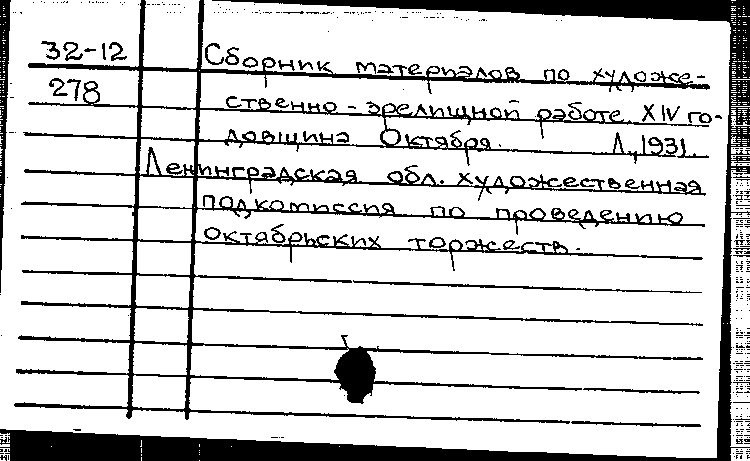 32-12 Сборник материалов по художе-
278 ственно-зрелищной работе XIV го-
довщина Октября. Л., 1931.
Ленинградская обл. художественная
подкомиссия по проведению
октябрьских торжеств.